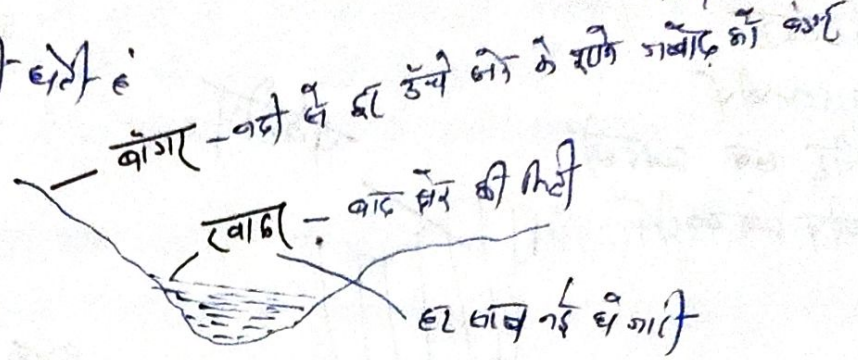 होती है
बाँगर - नदी से दूर ऊँचे क्षेत्र के पुराने जलोढ़ को बाँगर
खादर - बाढ़ क्षेत्र की मिट्टी
हर साल नई हो जाती